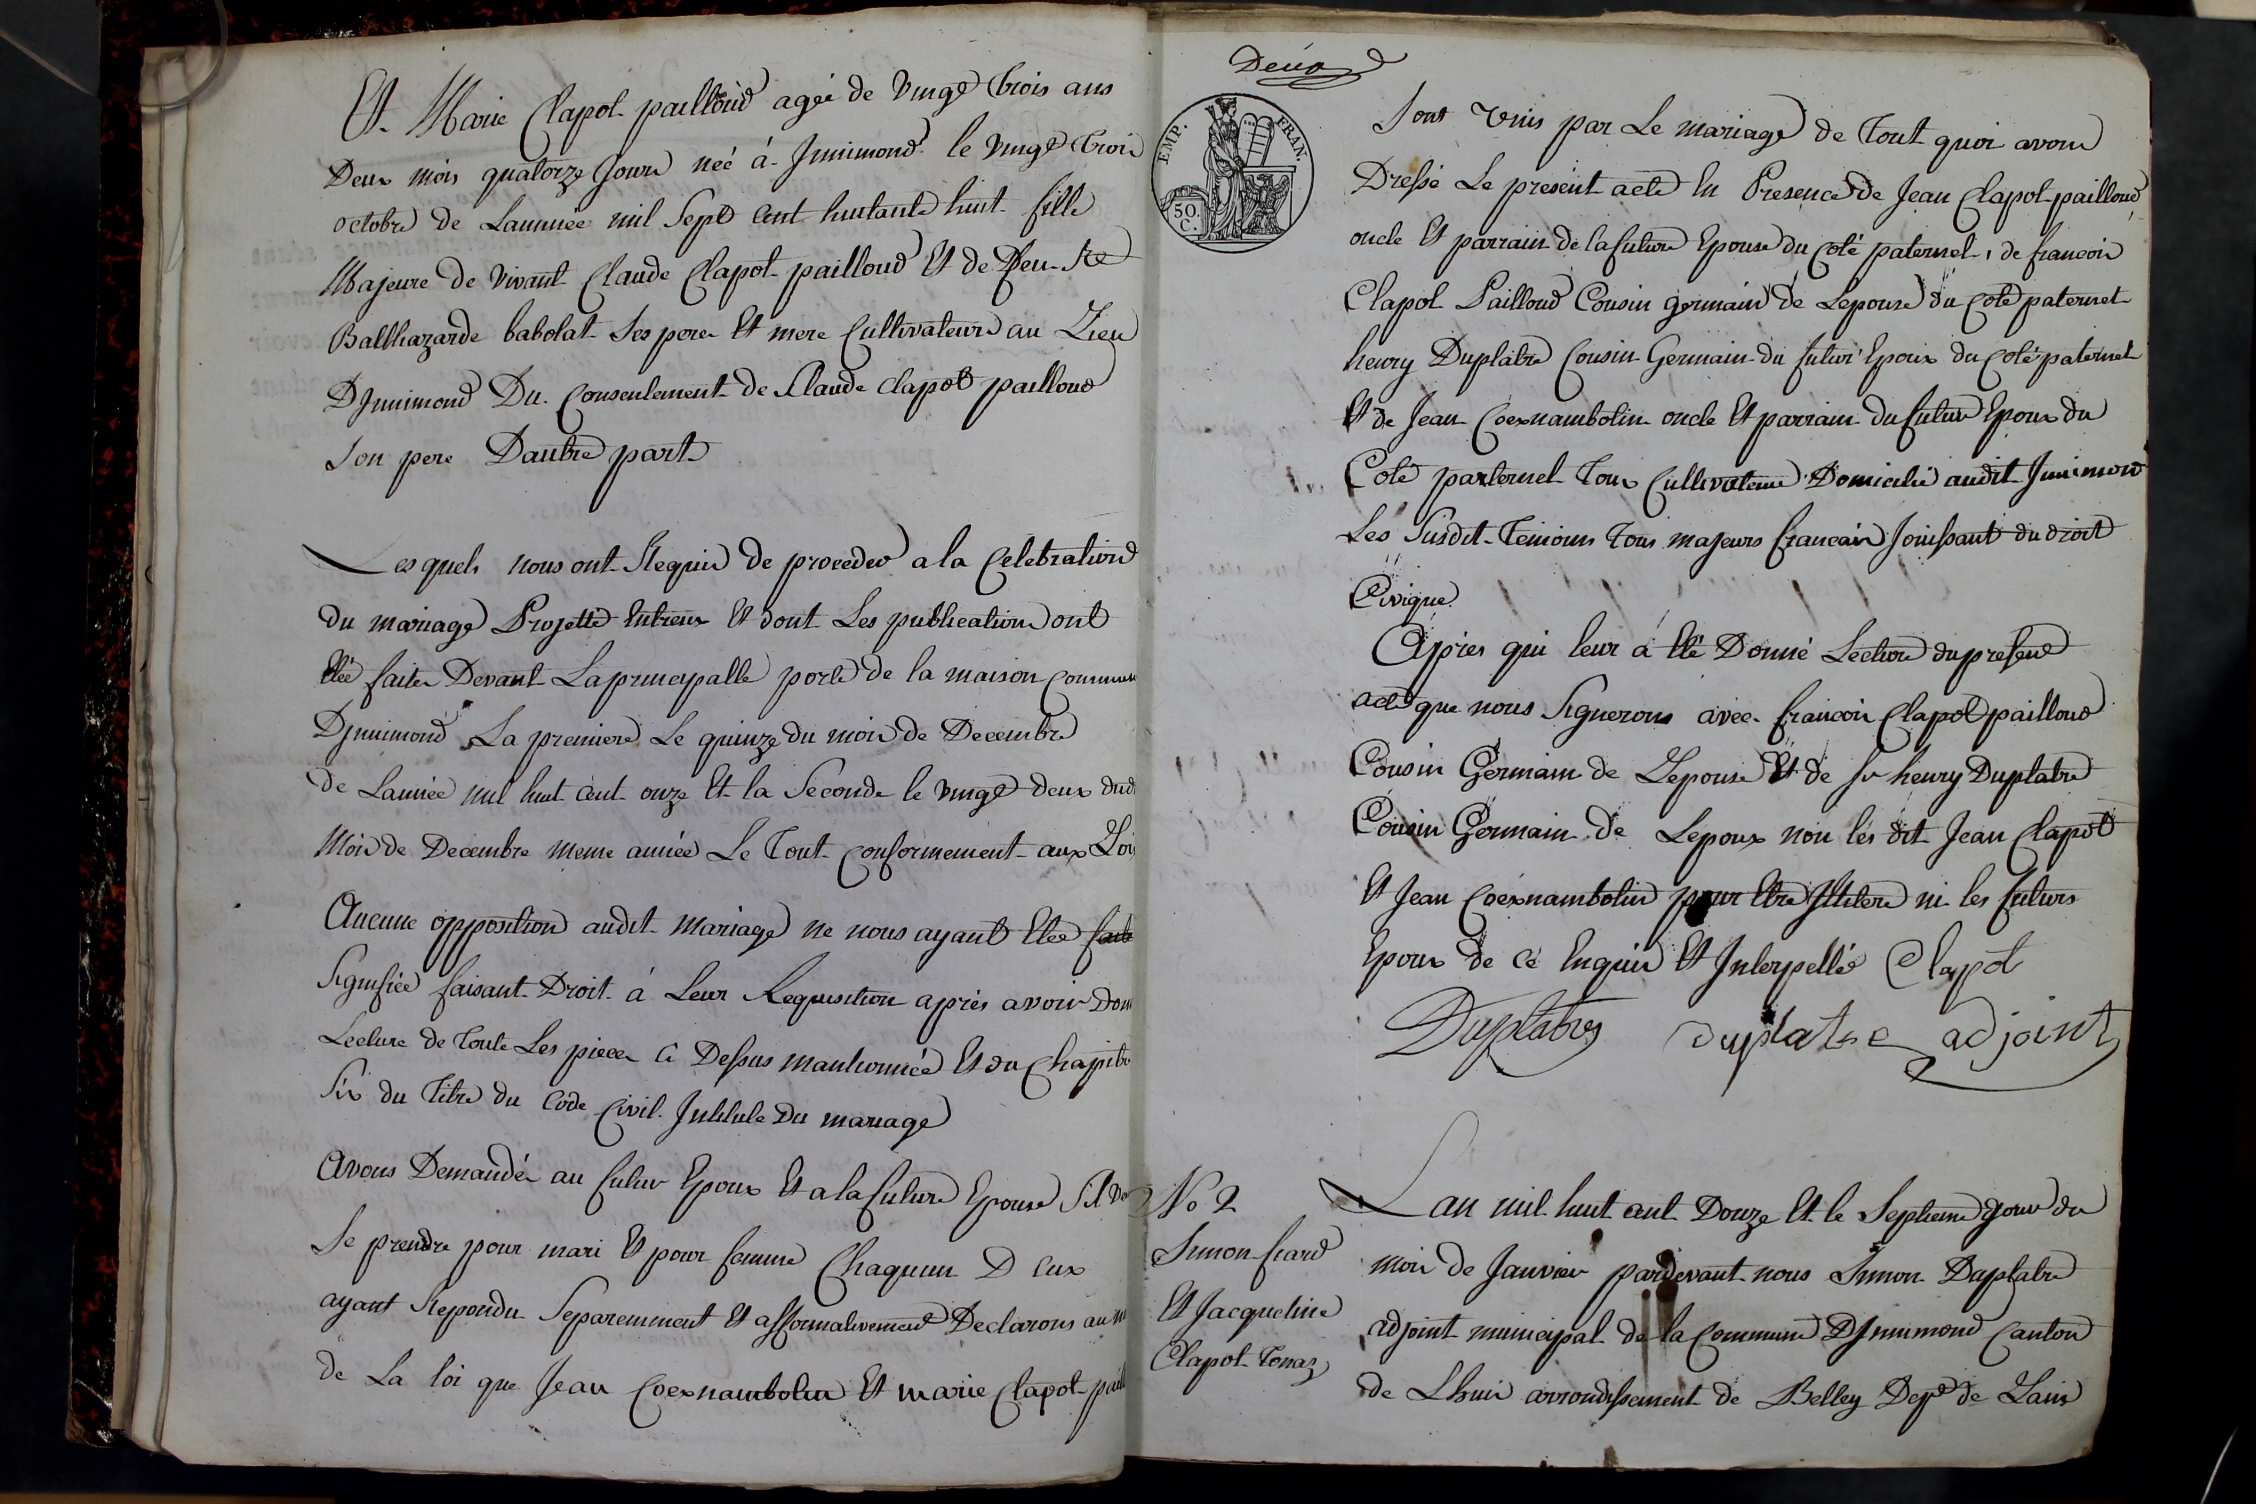 Et Marie Clapot pailloud agée de vingt trois ans
Deux mois quatorze Jours née à Jnnimond le vingt trois
octobre de Lannuée mil Sept cent huitante huit fille
Majeure de vivant Claude Clapot pailloud Et de feu Ste
Balthazarde babolat Ses pere Et mere Cultivateurs au Lieu
DJnnimond Du Consentement de Claude Clapot pailloud
Son pere Dautre part
Lesquels nous ont Requis de proceder a la Celebration
du mariage Projetté Entreux Et dont Les publication ont
Eté faites Devant La principalle porte de la maison Commune
DJnnimond La premiere Le quinze du mois de Decembre
de Lannée mil huit cent onze Et la Seconde le vingt deux dud
Mois de Decembre meme année Le Tout Conformement aux Lois
Aucune opposition audit mariage ne nous ayant Etée faite
Signifiée faisant Droit à Leur Requisition après avoir Don
Lecture de Toute Les pieces Ci Dessus mantionnée Et du Chapitre
Six du Titre du Code Civil Jntitule Du mariage
Avons Demandée au futur Epoux Et a la future Epouse Sil
Se prendre pour mari Et pour femme Chaquun D Eux
ayant Repondu Separemment Et afformativement Declarons au
de La loi que Jean Coexnambotin Et Marie Clapot paill
Deux
EMP. FRAN.
50. C.
Sont Unis par Le mariage de Tout quoi avons
Dressé Le present acte En Presence de Jean Clapot pailloud
oncle Et parrain de la future Epouse du Coté paternel, de francois
Clapot Pailloud Cousin germain de Lepouse du Coté paternel
henry Duplatre Cousin Germain du futur Epoux du Coté paternel
Et de Jean Coexnambotin oncle Et parrain du futur Epoux du
Coté parternel Tous Cultivateur Domicilié audit Jnnimond
Les Susdit Temoins Tous majeurs francais Jouissant du droit
Civique
Après qui leur à Eté Donné Lecture du present
acte que nous Signerons avec francois Clapot pailloud
Cousin Germain de Lepouse Et de Sr henry Duplatre
Cousin Germain de Lepoux non les dit Jean Clapot
Et Jean Coexnambotin pour Etre Jllitere ni les futurs
Epoux de ce Enquis Et Jnterpellés Clapot
Duplatre duplatre adjoint
No 2
Simon frard
Et Jacqueline
Clapot Tonaz
Lan mil huit cent Douze Et le Septieme Jour du
mois de Janvier pardevant nous Simon Duplatre
adjoint municipal de la Commune DJnnimond Canton
de Lhuis arrondissement de Belley Dept de Lain